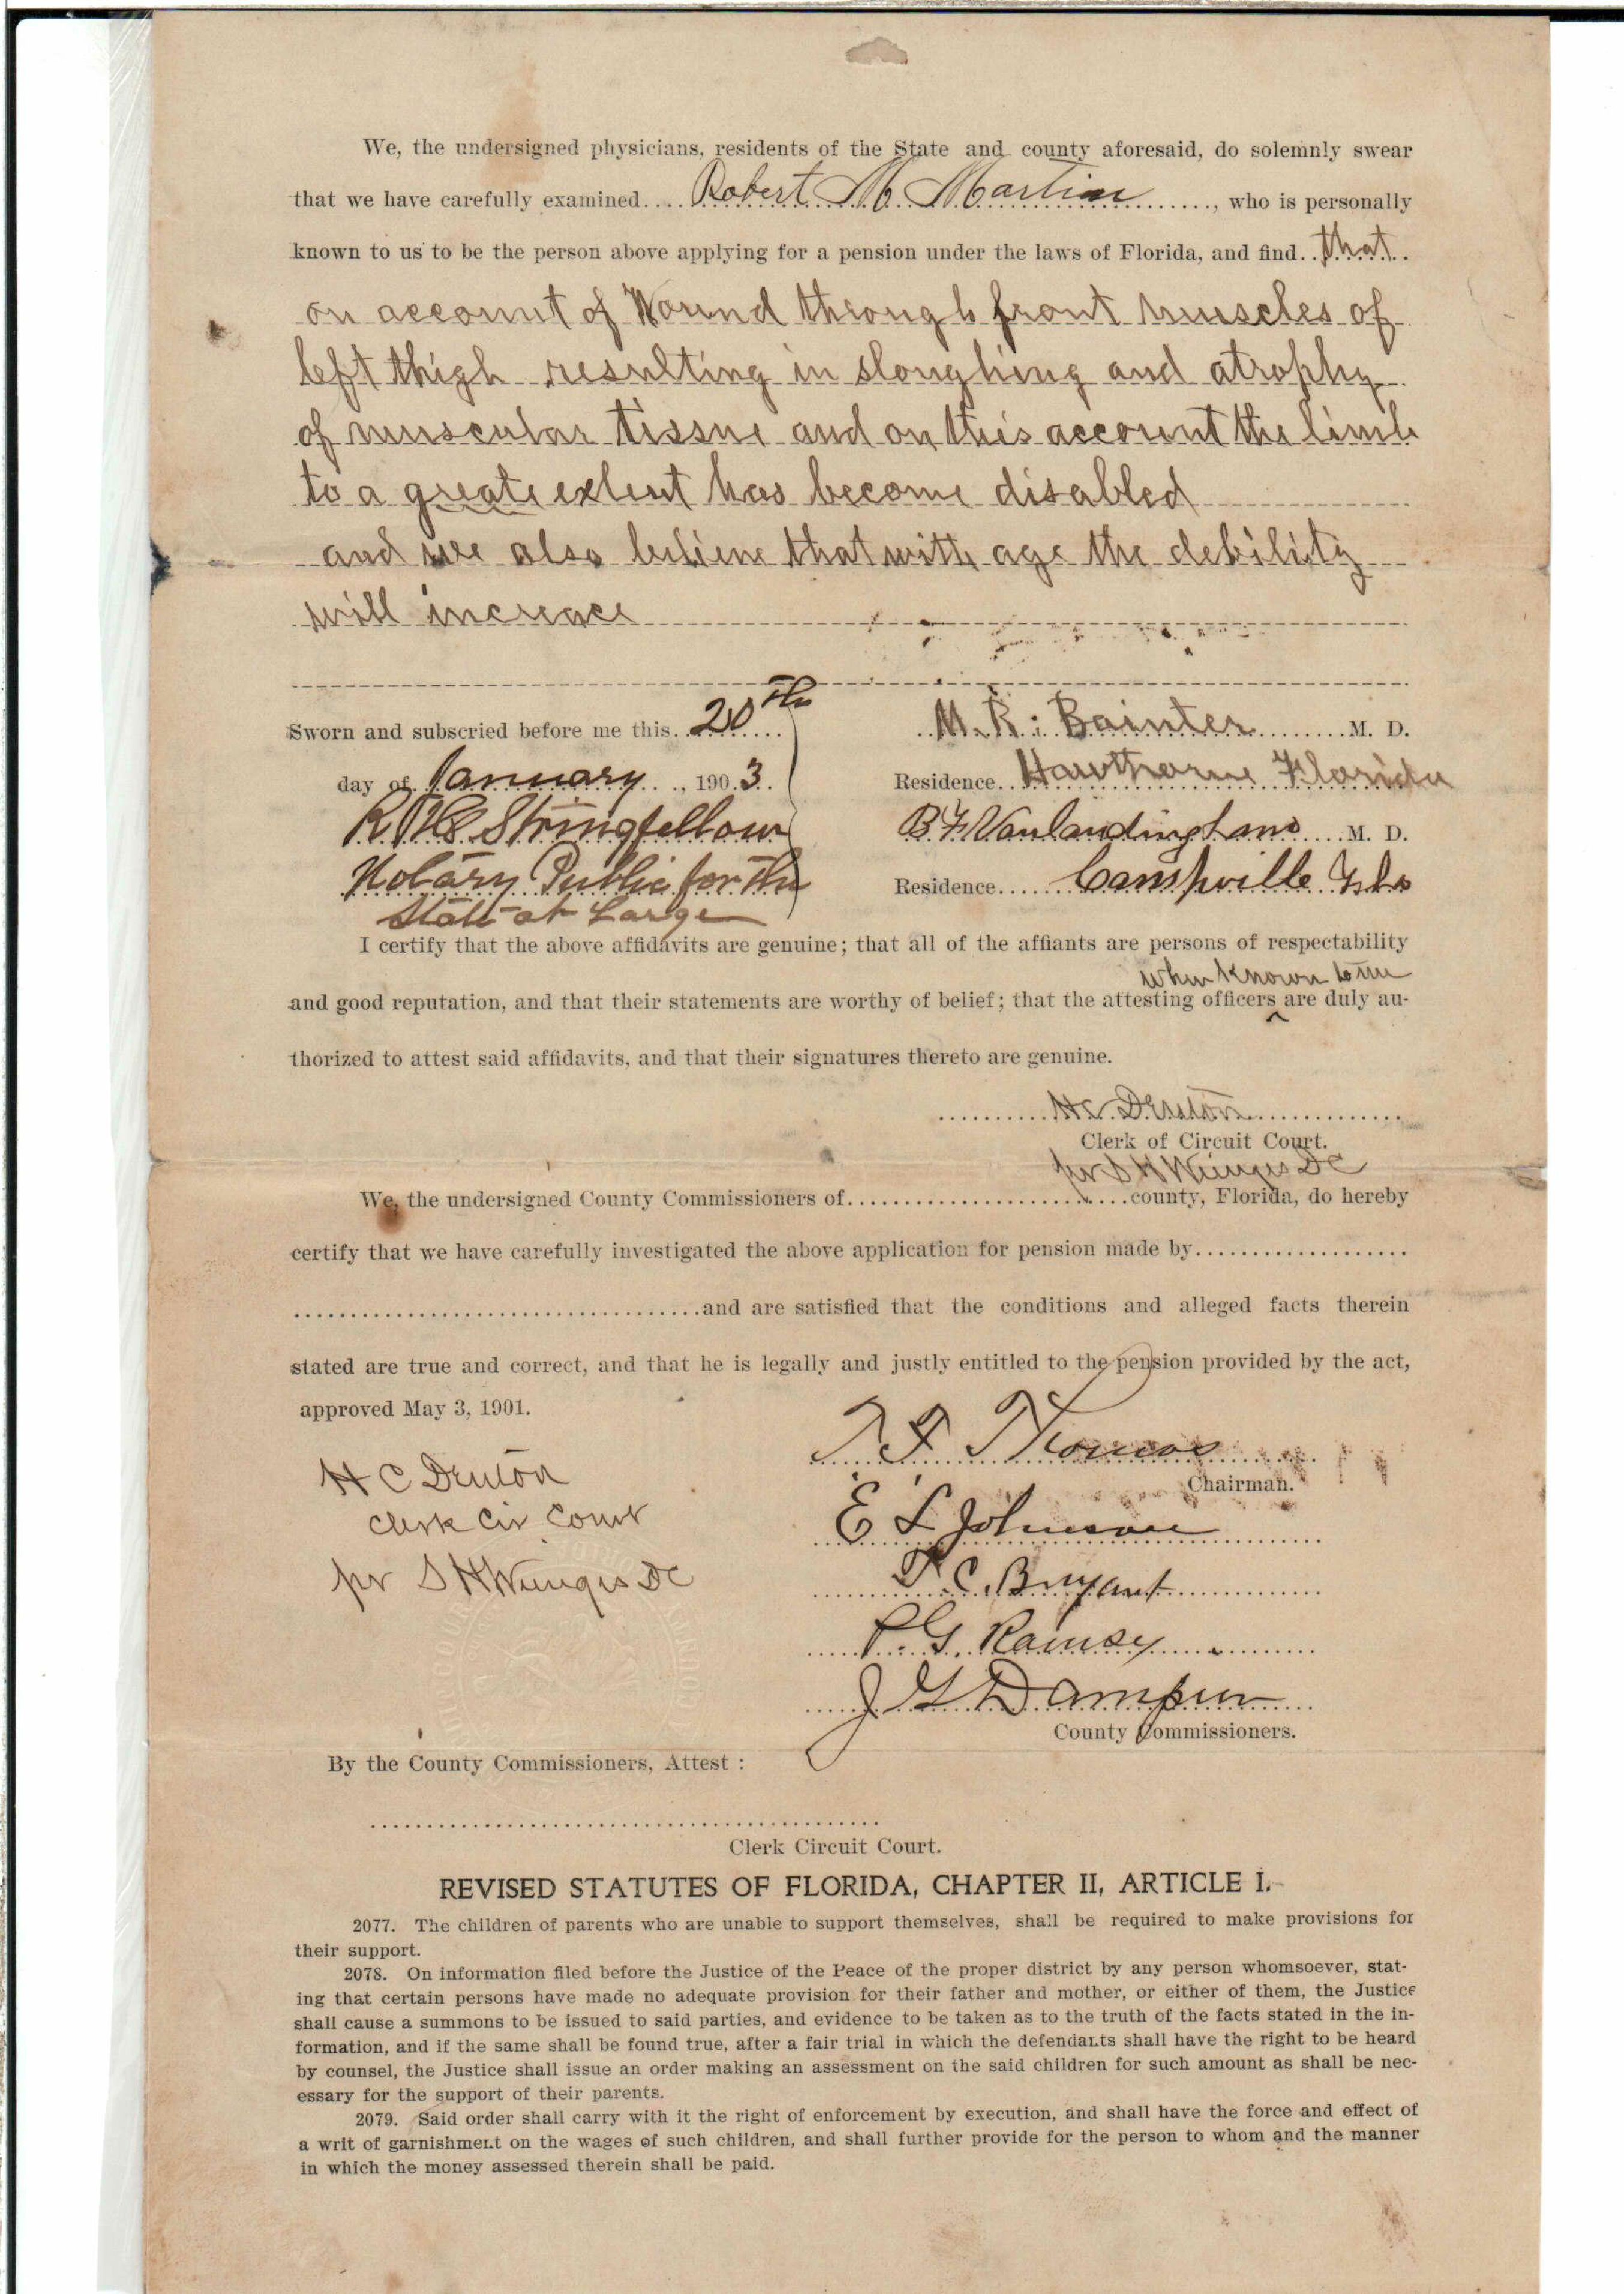 We, the undersigned physicians, residents of the State and county aforesaid, do solemnly swear
that we have carefully examined..... Robert M Martin ........, who is personally
known to us to be the person above applying for a pension under the laws of Florida, and find.. that..
on account of Wound through front muscles of
left thigh resulting in sloughing and atrophy
of muscular tissue and on this account the limb
to a greate extent has become disabled
and we also believe that with age the debility
will increace
Sworn and subscried before me this.. 20th
M. R. Bainter ........ M. D.
day of January ..., 1903.
Residence.. Hawthorne Florida
Stringfellow
B F Vanlandingham ... M. D.
Notary Public for the
Residence..... Campville Fla
State at Large
I certify that the above affidavits are genuine; that all of the affiants are persons of respectability
when known to me
and good reputation, and that their statements are worthy of belief; that the attesting officers ^ are duly au-
thorized to attest said affidavits, and that their signatures thereto are genuine.
H C Denton
Clerk of Circuit Court.
pr S H Wienges DC
We, the undersigned County Commissioners of........................county, Florida, do hereby
certify that we have carefully investigated the above application for pension made by...................
....................................and are satisfied that the conditions and alleged facts therein
stated are true and correct, and that he is legally and justly entitled to the pension provided by the act,
approved May 3, 1901.
T F Thomas
H C Denton
Chairman.
Clerk Cir Court
E L Johnson
pr S H Wienges DC
T. C. Bryant
P. G. Ramsey
J G Dampier
County Commissioners.
By the County Commissioners, Attest :
Clerk Circuit Court.
REVISED STATUTES OF FLORIDA, CHAPTER II, ARTICLE I.
2077. The children of parents who are unable to support themselves, shall be required to make provisions for
their support.
2078. On information filed before the Justice of the Peace of the proper district by any person whomsoever, stat-
ing that certain persons have made no adequate provision for their father and mother, or either of them, the Justice
shall cause a summons to be issued to said parties, and evidence to be taken as to the truth of the facts stated in the in-
formation, and if the same shall be found true, after a fair trial in which the defendants shall have the right to be heard
by counsel, the Justice shall issue an order making an assessment on the said children for such amount as shall be nec-
essary for the support of their parents.
2079. Said order shall carry with it the right of enforcement by execution, and shall have the force and effect of
a writ of garnishment on the wages of such children, and shall further provide for the person to whom and the manner
in which the money assessed therein shall be paid.